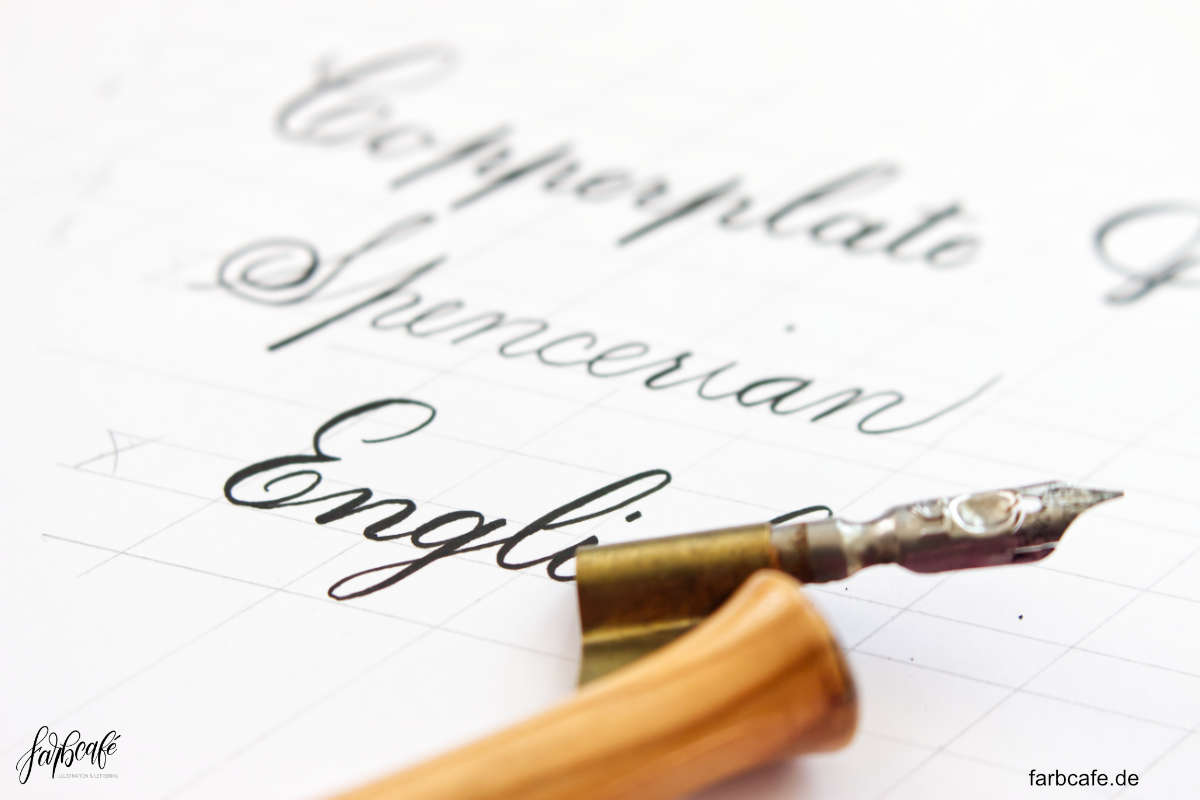 Copperplate &
Spencerian
Engli
farbcafé
ILLUSTRATION & LETTERING
farbcafe.de